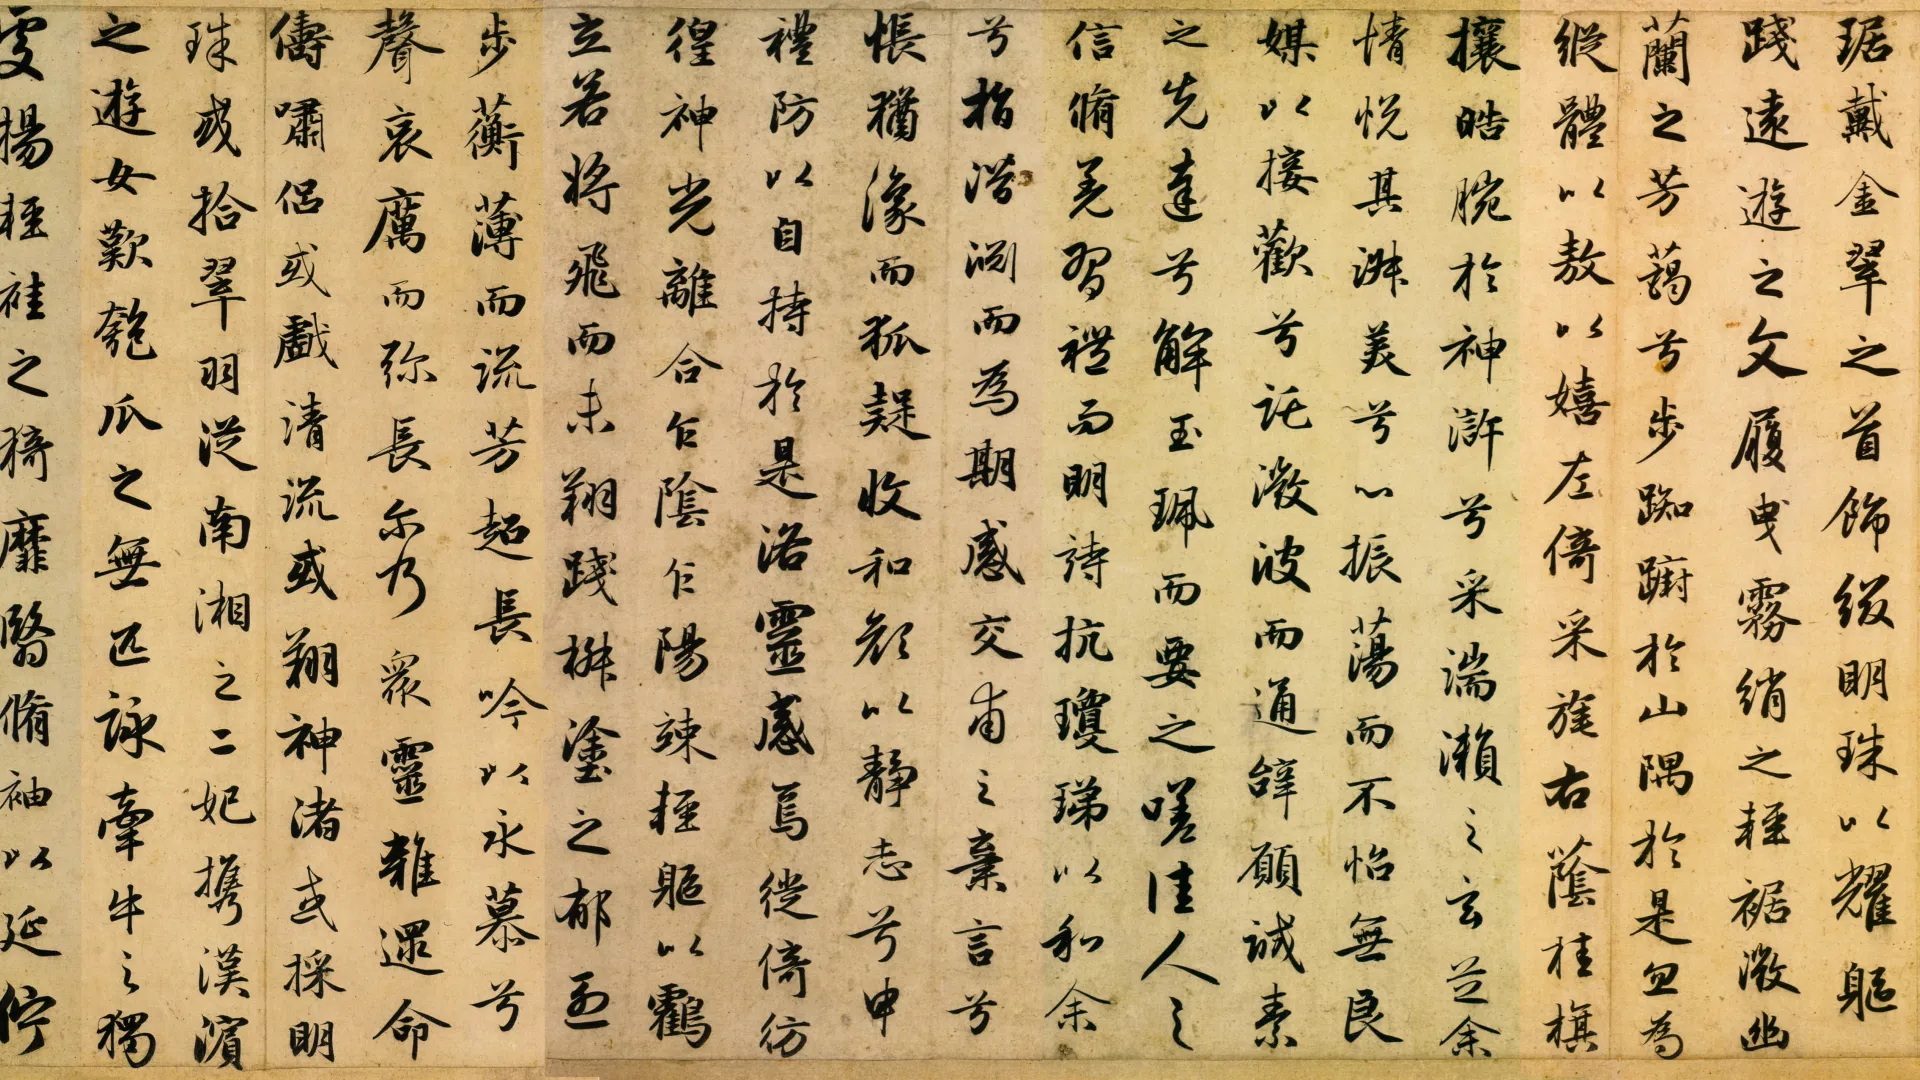 琚戴金翠之首飾綴明珠以耀軀
踐遠遊之文履曳霧綃之輕裾微幽
蘭之芳藹兮步踟躕於山隅於是忽焉
縱體以敖以嬉左倚采旄右蔭桂旗
攘皓腕於神滸兮采湍瀨之玄芝余
情悅其淑美兮心振蕩而不怡無良
媒以接歡兮託微波而通辭願誠素
之先達兮解玉珮而要之嗟佳人之
信脩羌習禮而明詩抗瓊珶以和余
兮指潛淵而為期感交甫之棄言兮
悵猶豫而狐疑收和顏以靜志兮申
禮防以自持於是洛靈感焉徙倚彷
徨神光離合乍陰乍陽竦輕軀以鶴
立若將飛而未翔踐椒塗之郁烈
步蘅薄而流芳超長吟以永慕兮
聲哀厲而弥長尔乃眾靈雜遝命
儔嘯侶或戲清流或翔神渚或採明
珠或拾翠羽從南湘之二妃攜漢濱
之遊女歎匏瓜之無匹詠牽牛之獨
處揚輕袿之猗靡翳脩袖以延佇